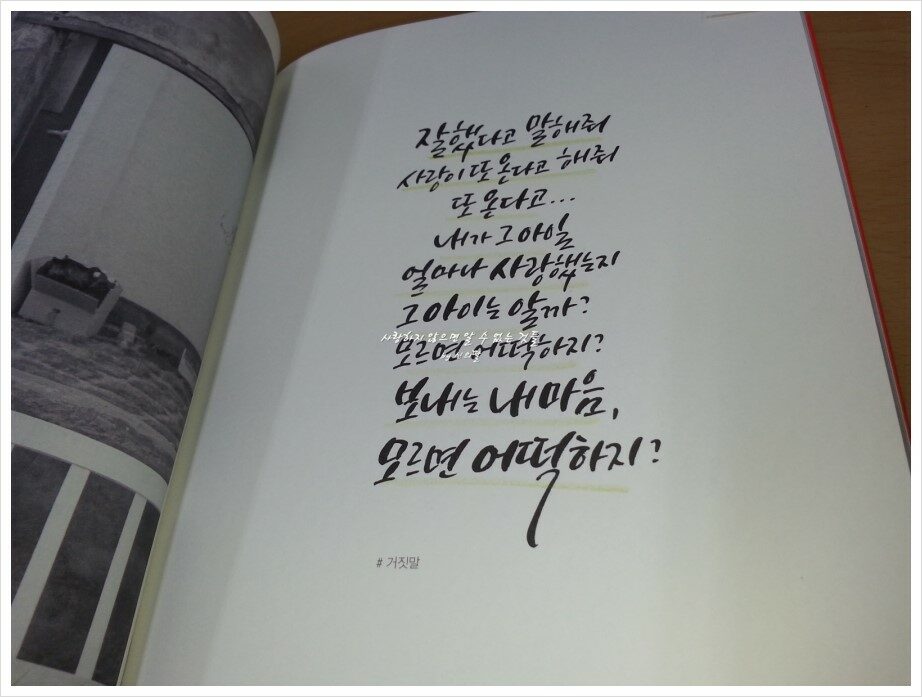 잘했다고 말해줘
사랑이 또 온다고 해줘
또 온다고...
내가 그 아일
얼마나 사랑했는지
그 아이는 알까?
사랑하지 않으면 알 수 없는 것들
모르면 어떡하지?
보내는 내 마음,
모르면 어떡하지?
# 거짓말